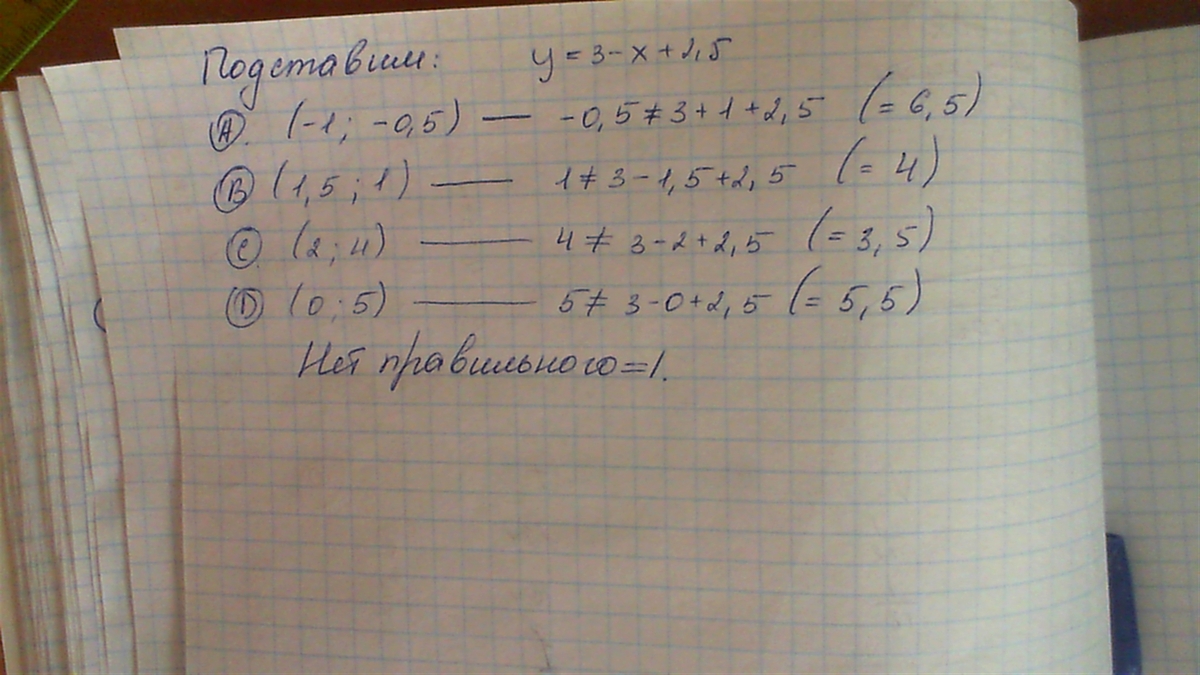 Подставим: y = 3 - x + 2,5
А. (-1; -0,5) — -0,5 ≠ 3 + 1 + 2,5 (= 6,5)
В (1,5; 1) — 1 ≠ 3 - 1,5 + 2,5 (= 4)
С. (2; 4) — 4 ≠ 3 - 2 + 2,5 (= 3,5)
D (0; 5) — 5 ≠ 3 - 0 + 2,5 (= 5,5)
Нет правильного = 1.